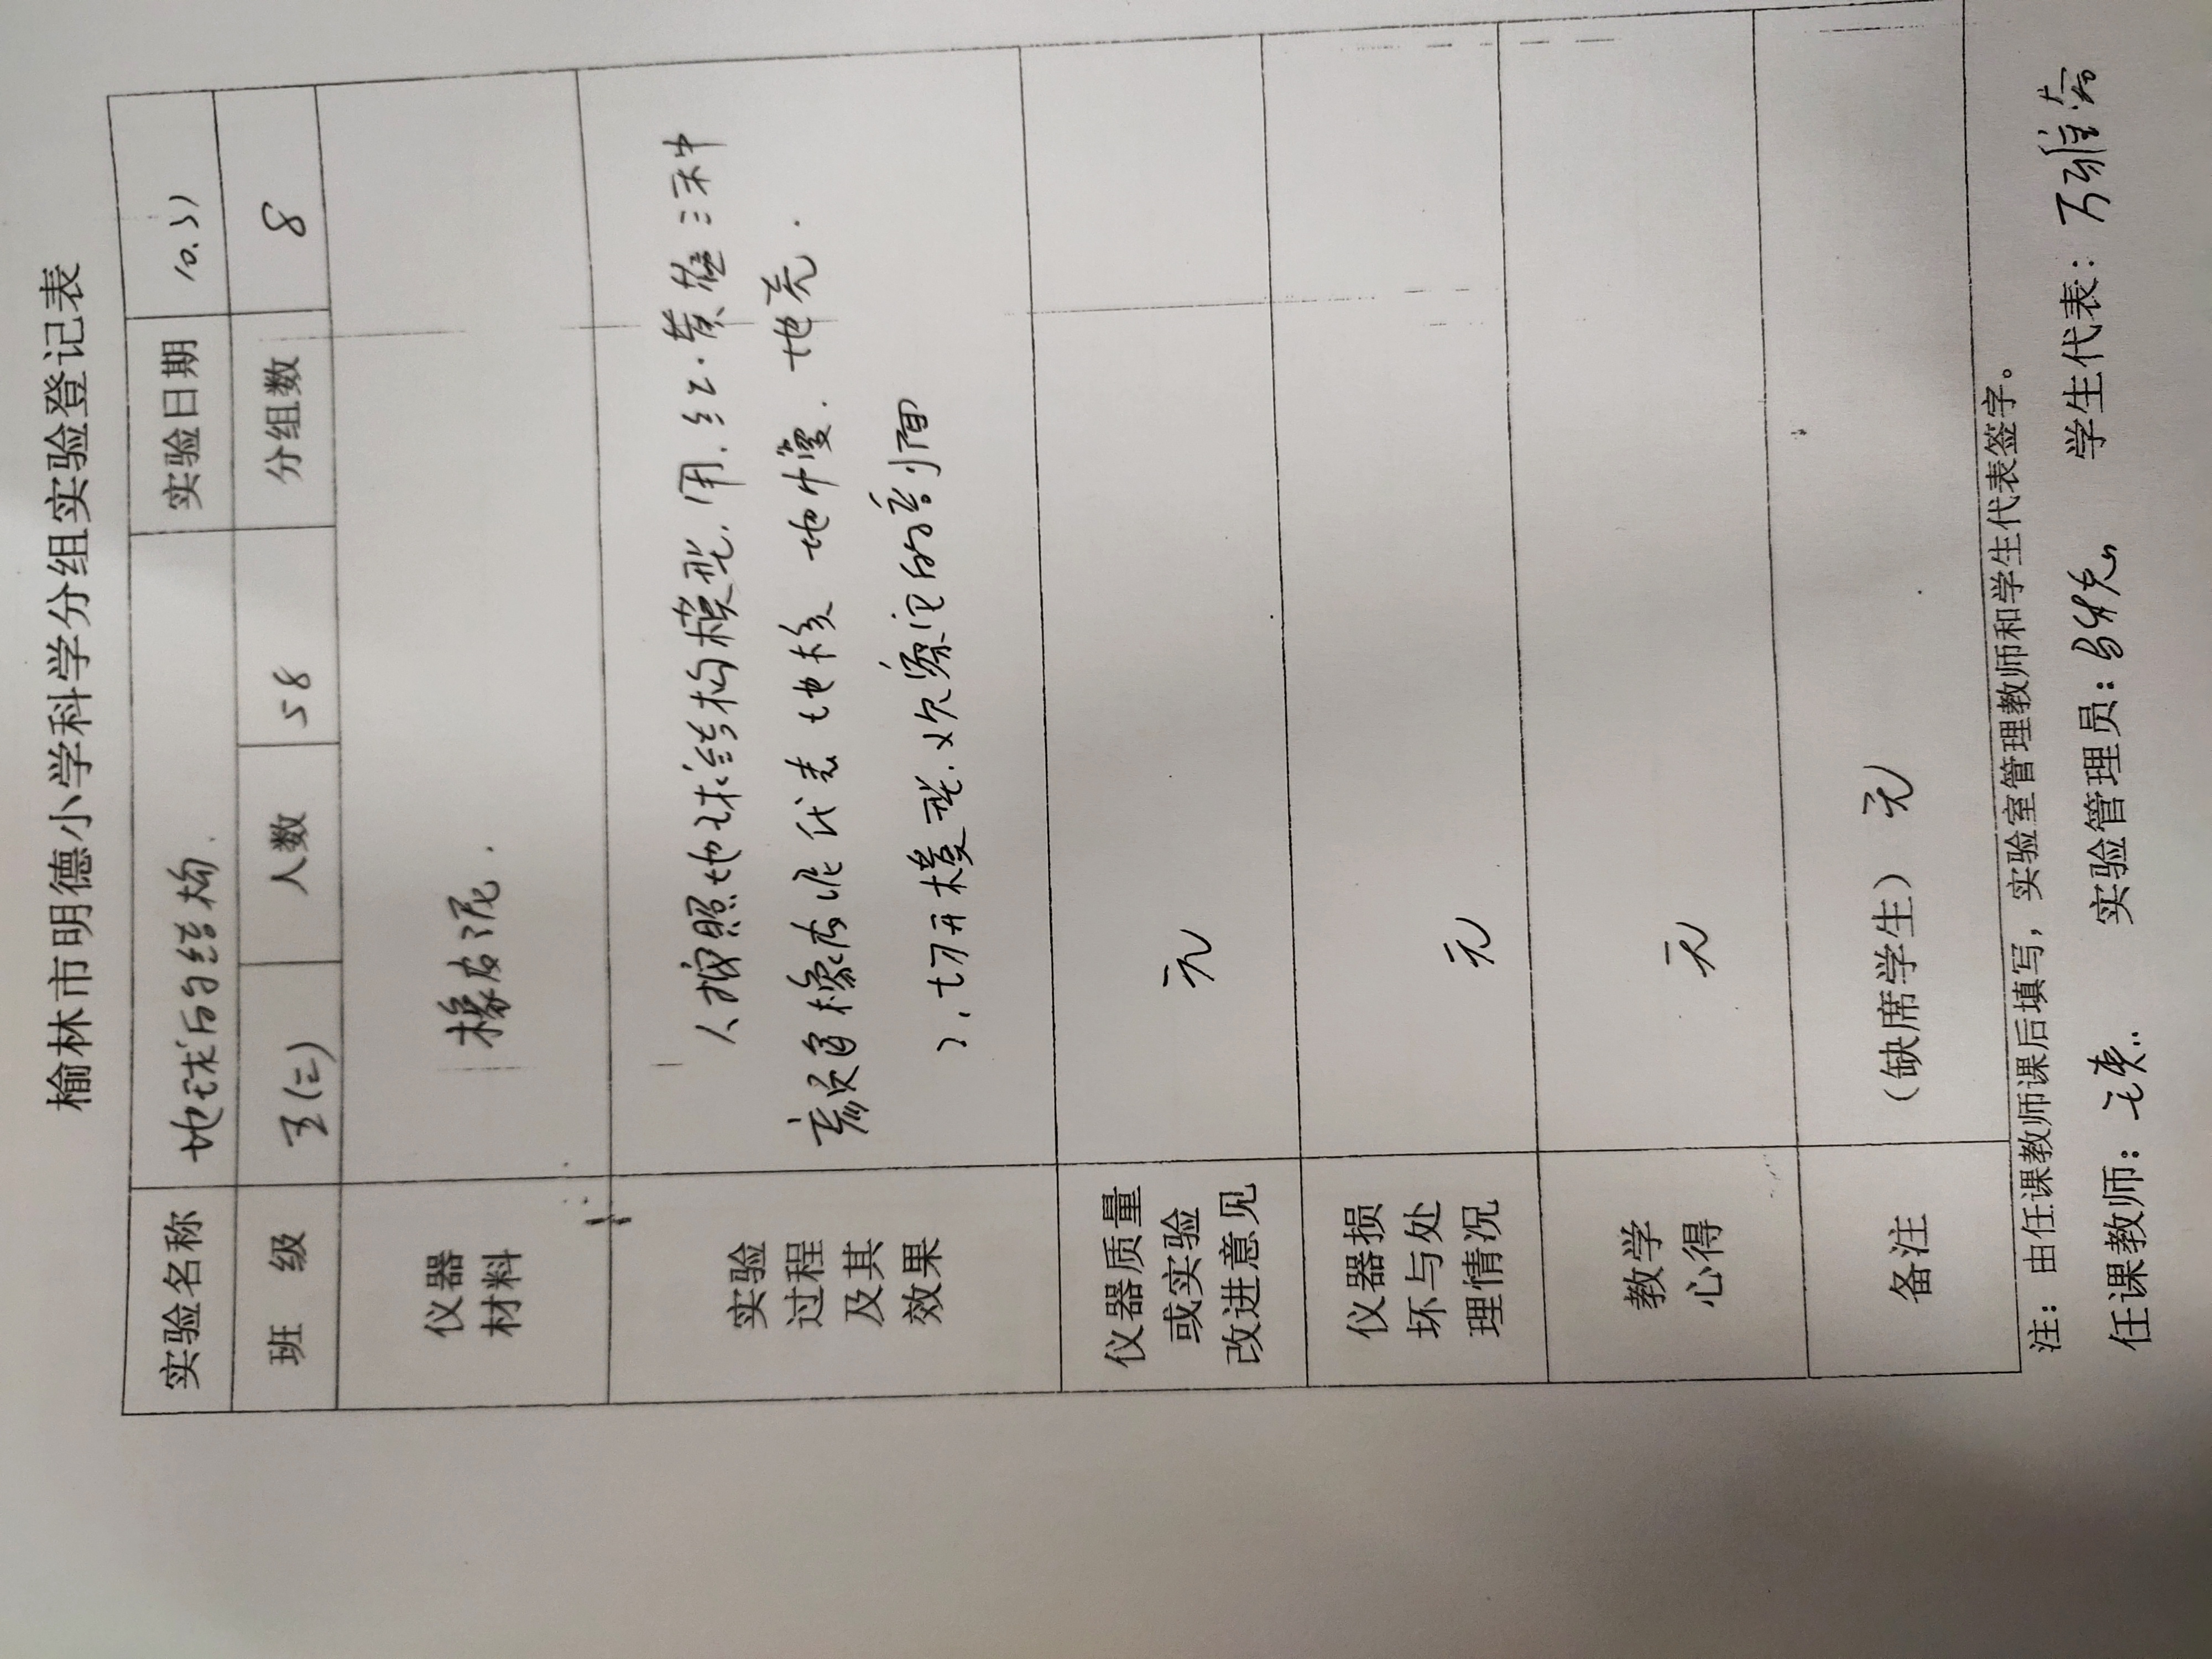 榆林市明德小学科学分组实验登记表
实验名称 地球的结构. 实验日期 10.31
班 级 五(二) 人数 58 分组数 8
仪器
材料 橡皮泥.
实验
过程
及其
效果
1、按照地球结构模型,用.红.黄.蓝三种
颜色橡皮泥代表 地核 地幔.地壳.
2.切开模型.观察它的剖面
仪器质量
或实验
改进意见 无
仪器损
坏与处
理情况 无
教学
心得 无
备注 (缺席学生) 无
注:由任课教师课后填写,实验室管理教师和学生代表签字。
任课教师: 实验管理员: 学生代表: